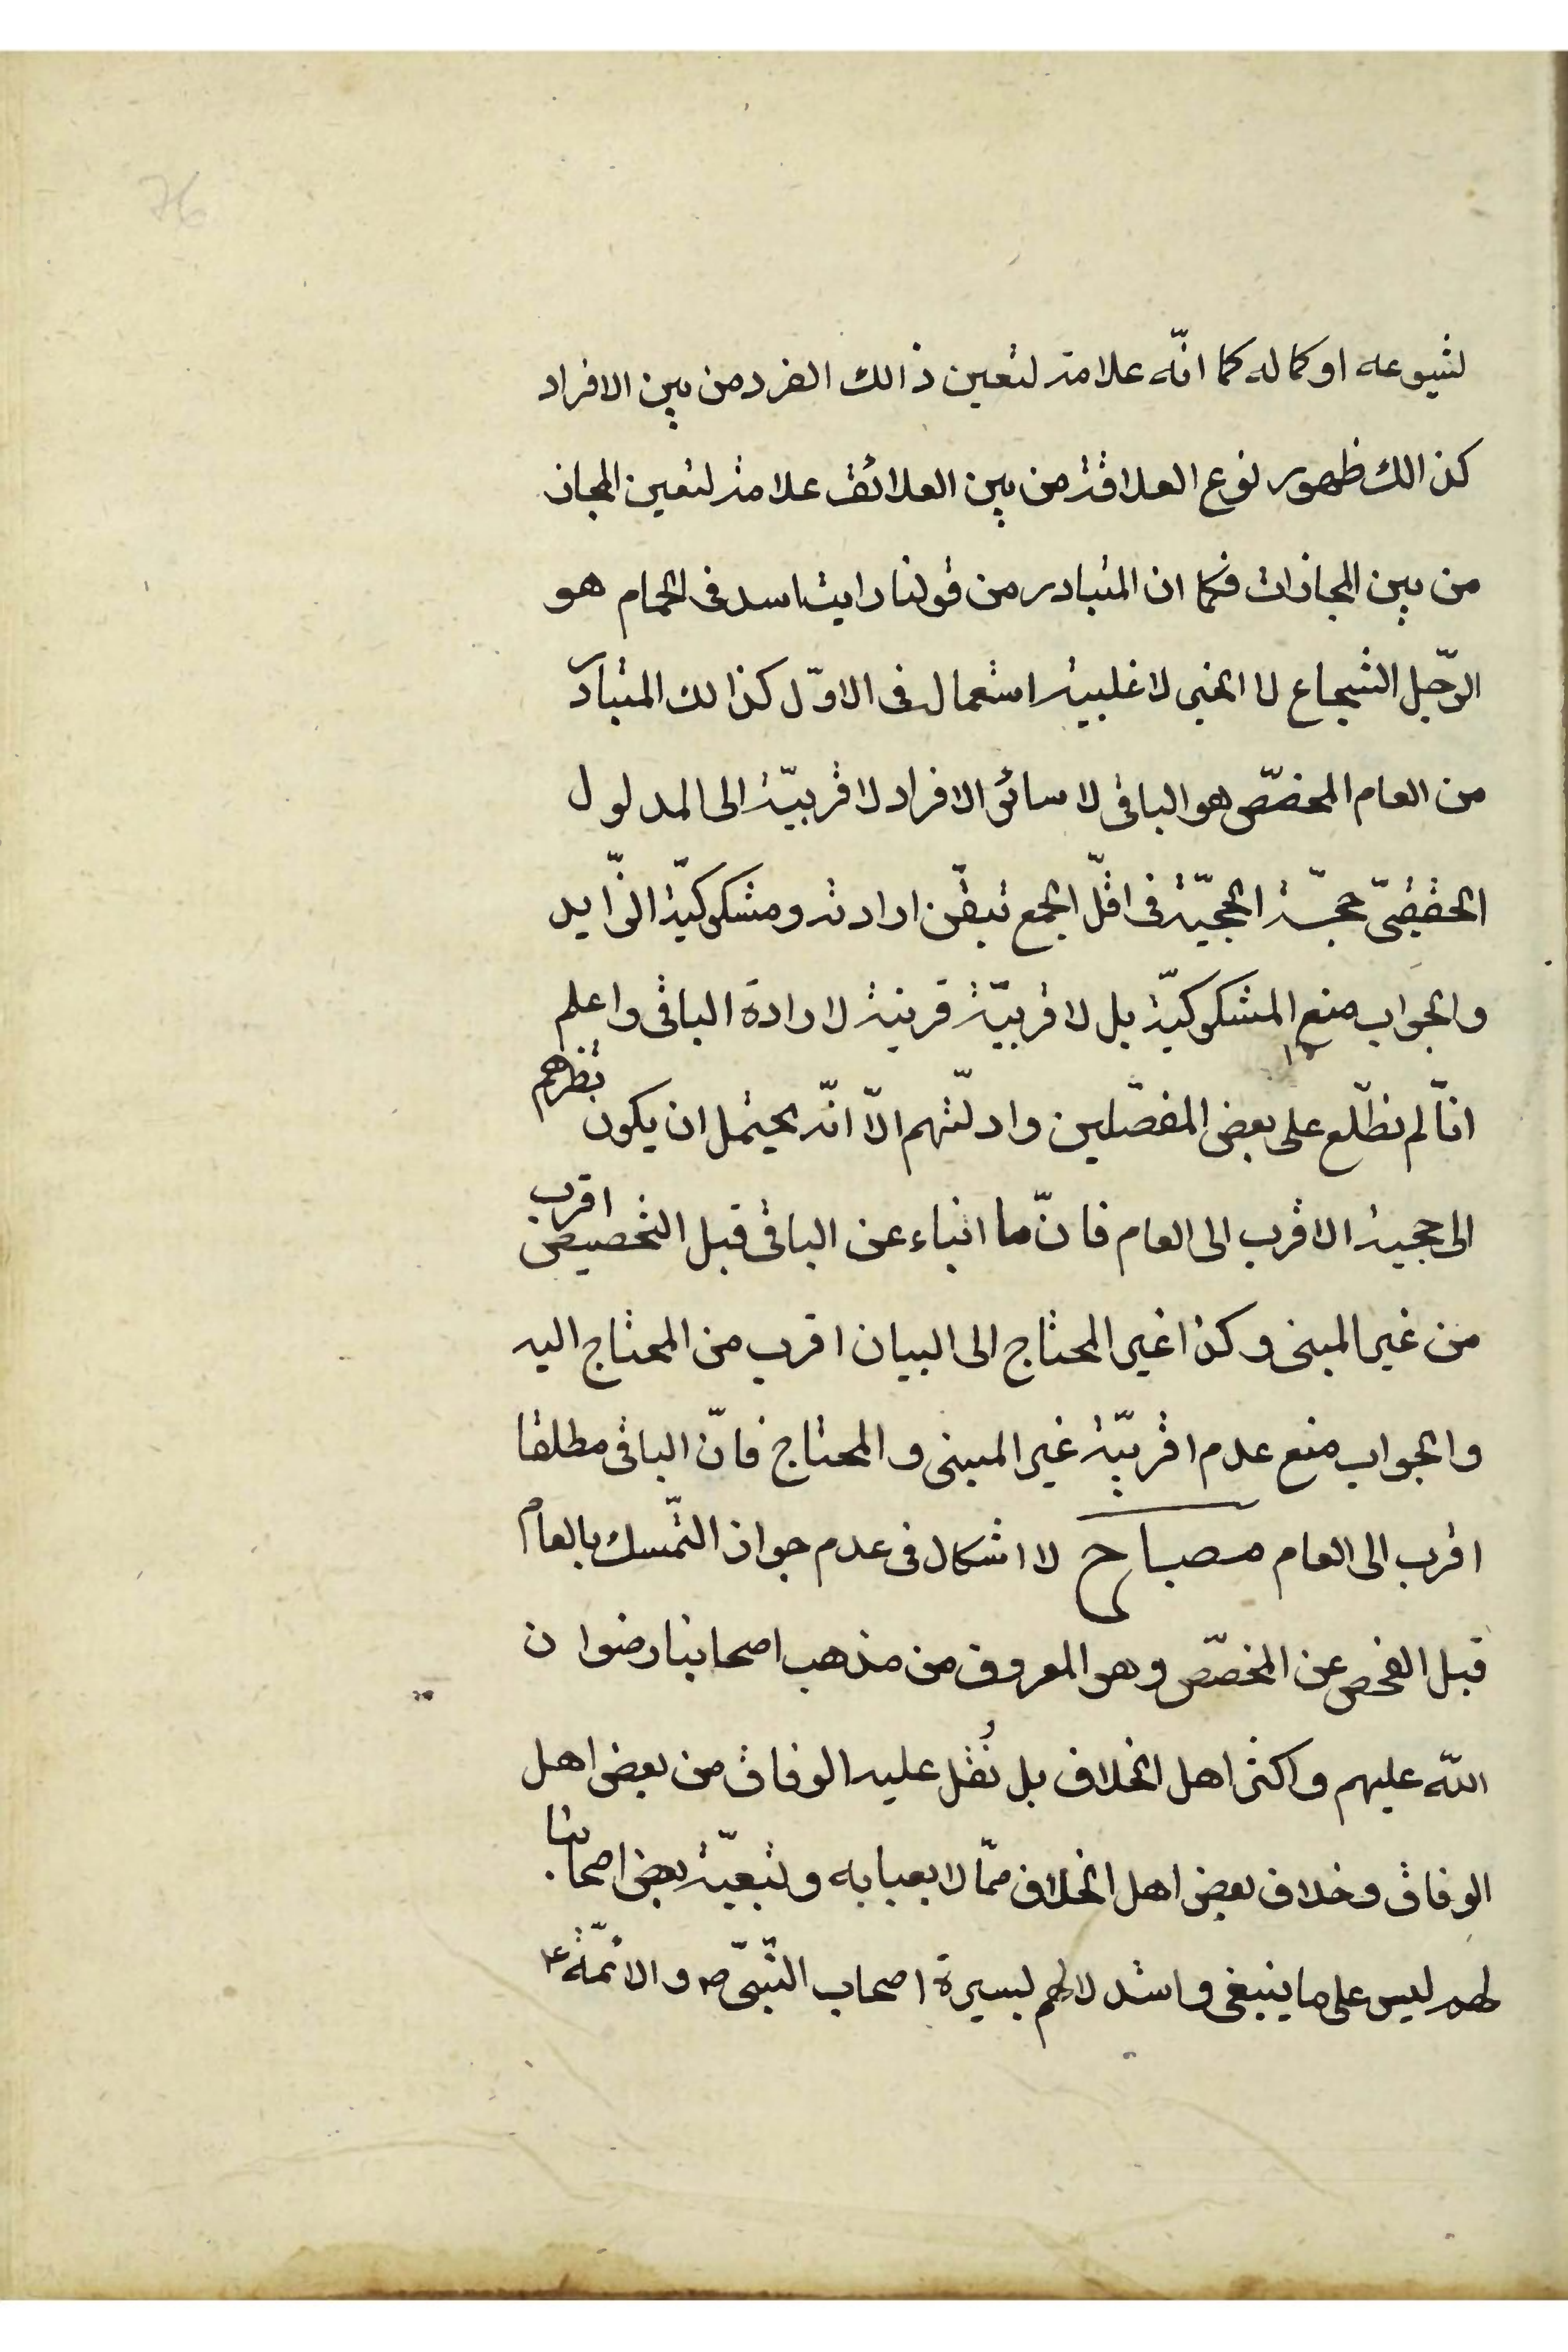 76
لشيوعه او كماله كما انّه علامة لتعين ذالك الفرد من بين الافراد
كذالك ظهور نوع العلاقة من بين العلائق علامة لتعين المجاز
من بين المجازات فكما ان المتبادر من قولنا رايت اسد فى الحمام هو
الرّجل الشجاع لا لاغلبية استعماله فى الاوّل كذالك المتبادر
من العام المخصّص هو الباقى لا سائر الافراد لاقربيّة الى المدلول
الحقيقىّ حجّة الحجيّة فى اقلّ الجمع تيقّن ارادته ومشكوكيّة الزّايد
والجواب منع المشكوكيّة بل لاقربيّة قرينة لارادة الباقى واعلم
انّا لم نطّلع على بعض المفصّلين وادلّتهم الّا انّه يحتمل ان يكون نظرهم
الى حجية الاقرب الى العام فانّ ما انباء عن الباقى قبل التخصيص اقرب
من غير المبنى وكذا غير المحتاج الى البيان اقرب من المحتاج اليه
والجواب منع عدم اقربيّة غير المبنى والمحتاج فانّ الباقى مطلقا
اقرب الى العام مصباح لا اشكال فى عدم جواز التّمسك بالعام
قبل الفحص عن المخصّص وهو المعروف من مذهب اصحابنا رضوان
اللّه عليهم واكثر اهل الخلاف بل نُقل عليه الوفاق من بعض اهل
الوفاق وخلاف بعض اهل الخلاف ممّا لا يعبا به وتبعيّة بعض اصحابنا
لهم ليس على ما ينبغى واستدلالهم بسيرة اصحاب النّبىّ ص والائمّة ع